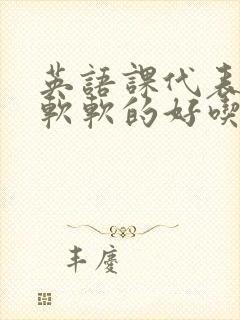 英語課代表
軟軟的好喫
丰慶